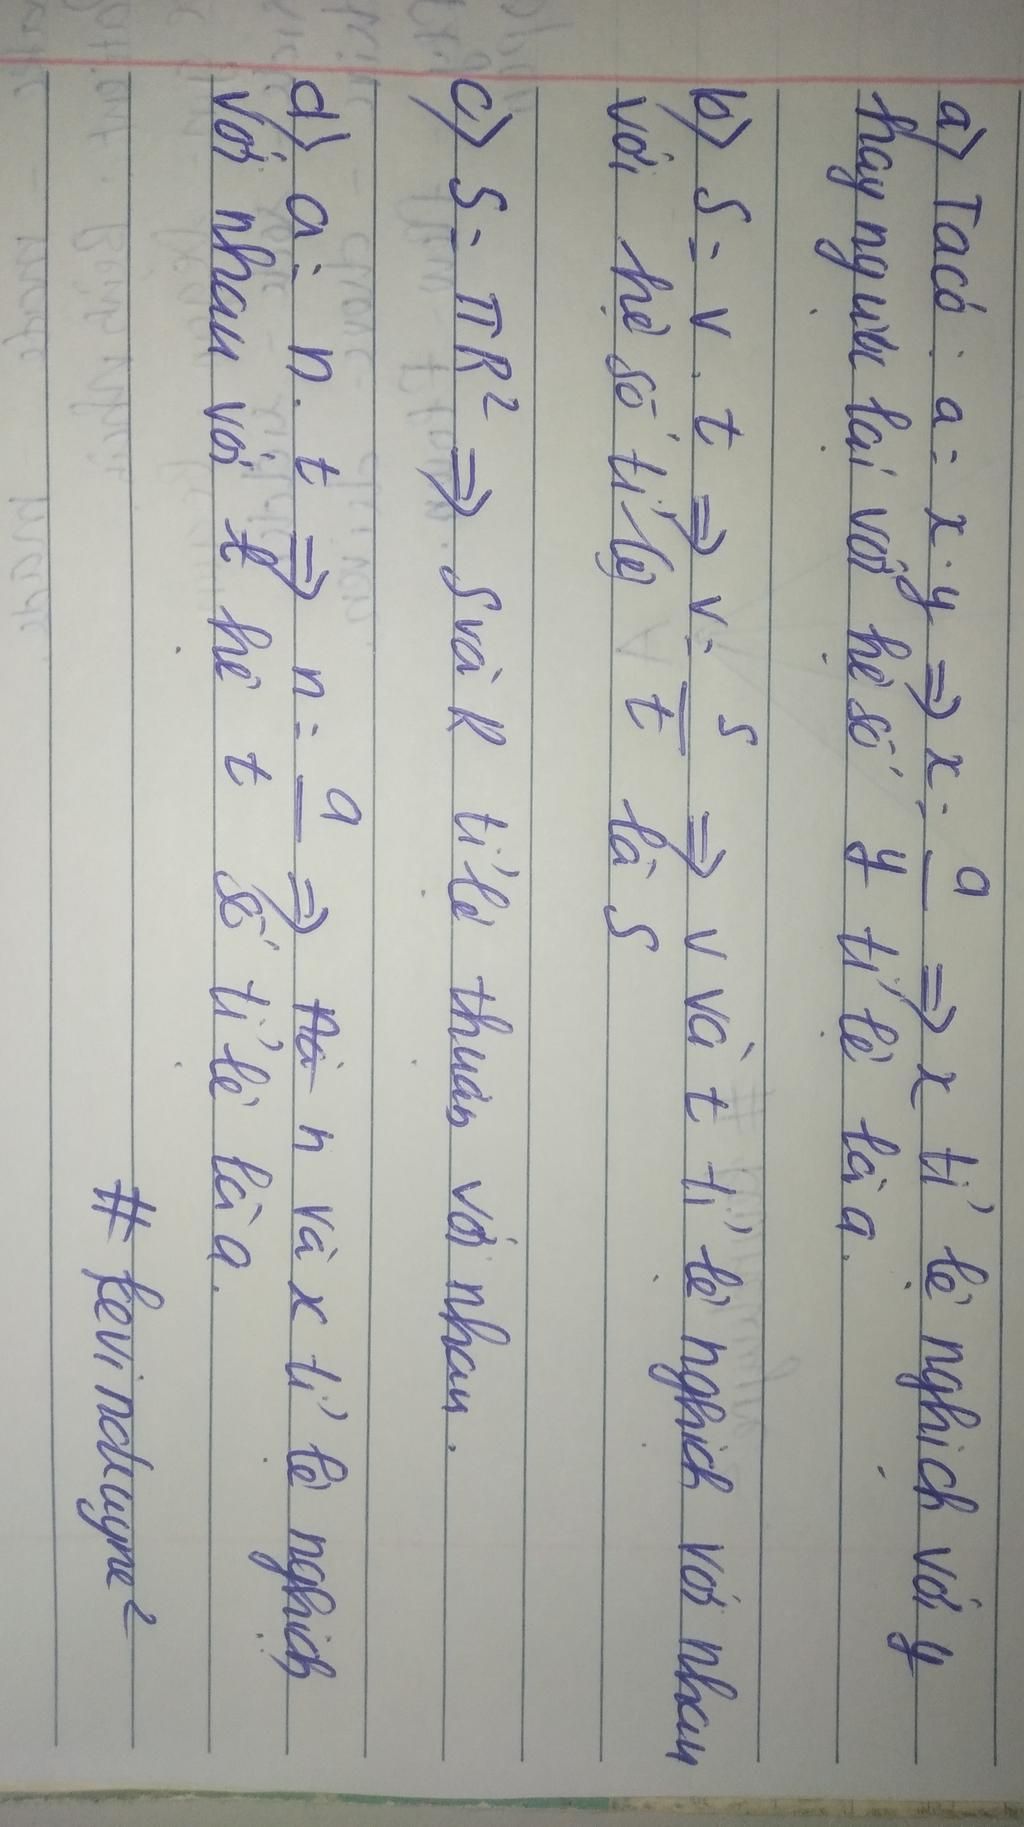 a) Ta có: a = x . y ⇒ x = a/y ⇒ x tỉ lệ nghịch với y
hay ngược lại với hệ số y tỉ lệ là a.
b) S = v . t ⇒ v = S/t ⇒ v và t tỉ lệ nghịch với nhau
với hệ số tỉ lệ là S
c) S = πR² ⇒ S và R tỉ lệ thuận với nhau.
d) a = n . t ⇒ n = a ⇒ n và x tỉ lệ nghịch
với nhau với hệ t số tỉ lệ là a.
# kevinduyne²